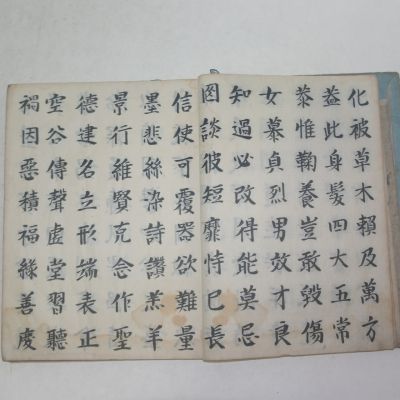 化被草木賴及萬方
盖此身髮四大五常
恭惟鞠養豈敢毀傷
女慕貞烈男效才良
知過必改得能莫忘
罔談彼短靡恃己長
信使可覆器欲難量
墨悲絲染詩讚羔羊
景行維賢克念作聖
德建名立形端表正
空谷傳聲虛堂習聽
禍因惡積福緣善慶